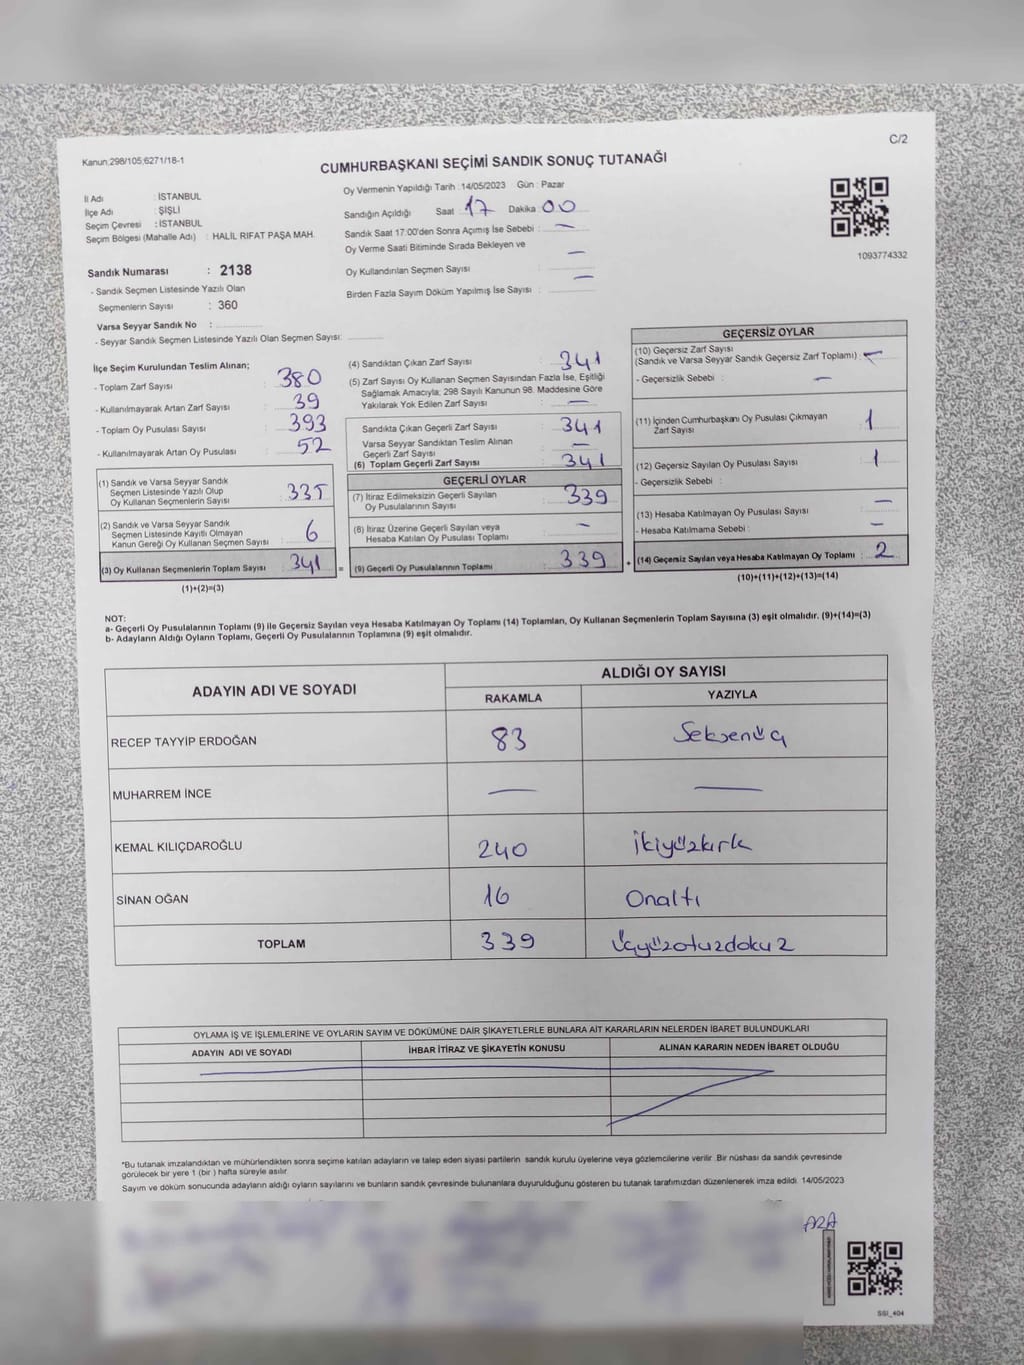 C/2
Kanun:298/105;6271/18-1
CUMHURBAŞKANI SEÇİMİ SANDIK SONUÇ TUTANAĞI
İl Adı : İSTANBUL
İlçe Adı : ŞİŞLİ
Seçim Çevresi : İSTANBUL
Seçim Bölgesi (Mahalle Adı) : HALİL RIFAT PAŞA MAH.
Sandık Numarası : 2138
- Sandık Seçmen Listesinde Yazılı Olan
Seçmenlerin Sayısı : 360
Varsa Seyyar Sandık No :
- Seyyar Sandık Seçmen Listesinde Yazılı Olan Seçmen Sayısı:
Oy Vermenin Yapıldığı Tarih : 14/05/2023 Gün : Pazar
Sandığın Açıldığı Saat 17 Dakika 00
Sandık Saat 17:00'den Sonra Açımış İse Sebebi : —
Oy Verme Saati Bitiminde Sırada Bekleyen ve —
Oy Kullandırılan Seçmen Sayısı :
Birden Fazla Sayım Döküm Yapılmış İse Sayısı : —
1093774332
İlçe Seçim Kurulundan Teslim Alınan;
- Toplam Zarf Sayısı : 380
- Kullanılmayarak Artan Zarf Sayısı : 39
- Toplam Oy Pusulası Sayısı : 393
- Kullanılmayarak Artan Oy Pusulası : 52
(1) Sandık ve Varsa Seyyar Sandık
Seçmen Listesinde Yazılı Olup
Oy Kullanan Seçmenlerin Sayısı : 335
(2) Sandık ve Varsa Seyyar Sandık
Seçmen Listesinde Kayıtlı Olmayan
Kanun Gereği Oy Kullanan Seçmen Sayısı : 6
(3) Oy Kullanan Seçmenlerin Toplam Sayısı : 341
(1)+(2)=(3)
(4) Sandıktan Çıkan Zarf Sayısı : 341
(5) Zarf Sayısı Oy Kullanan Seçmen Sayısından Fazla İse, Eşitliği
Sağlamak Amacıyla; 298 Sayılı Kanunun 98. Maddesine Göre
Yakılarak Yok Edilen Zarf Sayısı : —
Sandıkta Çıkan Geçerli Zarf Sayısı : 341
Varsa Seyyar Sandıktan Teslim Alınan
Geçerli Zarf Sayısı : —
(6) Toplam Geçerli Zarf Sayısı : 341
GEÇERLİ OYLAR
(7) İtiraz Edilmeksizin Geçerli Sayılan
Oy Pusulalarının Sayısı : 339
(8) İtiraz Üzerine Geçerli Sayılan veya
Hesaba Katılan Oy Pusulası Toplamı : —
= (9) Geçerli Oy Pusulalarının Toplamı : 339 +
GEÇERSİZ OYLAR
(10) Geçersiz Zarf Sayısı
(Sandık ve Varsa Seyyar Sandık Geçersiz Zarf Toplamı) : —
- Geçersizlik Sebebi : —
(11) İçinden Cumhurbaşkanı Oy Pusulası Çıkmayan
Zarf Sayısı : 1
(12) Geçersiz Sayılan Oy Pusulası Sayısı : 1
- Geçersizlik Sebebi :
(13) Hesaba Katılmayan Oy Pusulası Sayısı : —
- Hesaba Katılmama Sebebi : —
(14) Geçersiz Sayılan veya Hesaba Katılmayan Oy Toplamı : 2
(10)+(11)+(12)+(13)=(14)
NOT:
a- Geçerli Oy Pusulalarının Toplamı (9) ile Geçersiz Sayılan veya Hesaba Katılmayan Oy Toplamı (14) Toplamları, Oy Kullanan Seçmenlerin Toplam Sayısına (3) eşit olmalıdır. (9)+(14)=(3)
b- Adayların Aldığı Oyların Toplamı, Geçerli Oy Pusulalarının Toplamına (9) eşit olmalıdır.
ADAYIN ADI VE SOYADI ALDIĞI OY SAYISI
RAKAMLA YAZIYLA
RECEP TAYYİP ERDOĞAN 83 Seksenüç
MUHARREM İNCE — —
KEMAL KILIÇDAROĞLU 240 İkiyüzkırk
SİNAN OĞAN 16 Onaltı
TOPLAM 339 Üçyüzotuzdokuz
OYLAMA İŞ VE İŞLEMLERİNE VE OYLARIN SAYIM VE DÖKÜMÜNE DAİR ŞİKAYETLERLE BUNLARA AİT KARARLARIN NELERDEN İBARET BULUNDUKLARI
ADAYIN ADI VE SOYADI İHBAR İTİRAZ VE ŞİKAYETİN KONUSU ALINAN KARARIN NEDEN İBARET OLDUĞU
*Bu tutanak imzalandıktan ve mühürlendikten sonra seçime katılan adayların ve talep eden siyasi partilerin sandık kurulu üyelerine veya gözlemcilerine verilir. Bir nüshası da sandık çevresinde
görülecek bir yere 1 (bir ) hafta süreyle asılır.
Sayım ve döküm sonucunda adayların aldığı oyların sayılarını ve bunların sandık çevresinde bulunanlara duyurulduğunu gösteren bu tutanak tarafımızdan düzenlenerek imza edildi. 14/05/2023
SSI_404